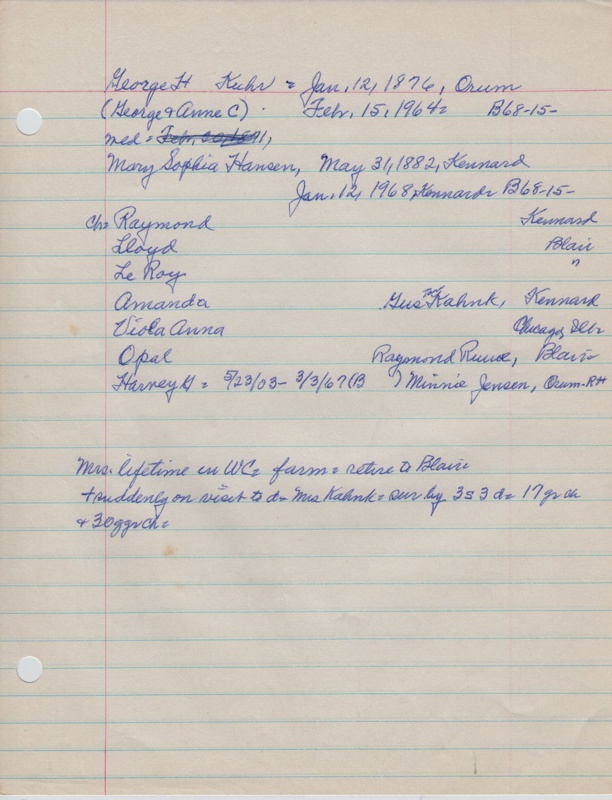 George H Kuhr = Jan. 12, 1876, Orum
(George & Anne C) . Febr. 15, 1964= B68-15-
med =
Mary Sophia Hansen, May 31, 1882, Kennard
Jan. 12, 1968, Kennard= B68-15-
ch= Raymond Kennard
Lloyd Blair
Le Roy "
Amanda Gus Kahnk, Kennard
Viola Anna Chicago, Ill=
Opal Raymond Blair=
Harvey G = 5/23/03- 3/3/67 (B ) Minnie Jensen, Orum-RH
Mrs. lifetime in WC= farm= retire to Blair=
+ suddenly on visit to d= Mrs Kahnk= sur by 3s 3d= 17 gr ch
& 30 ggr ch=